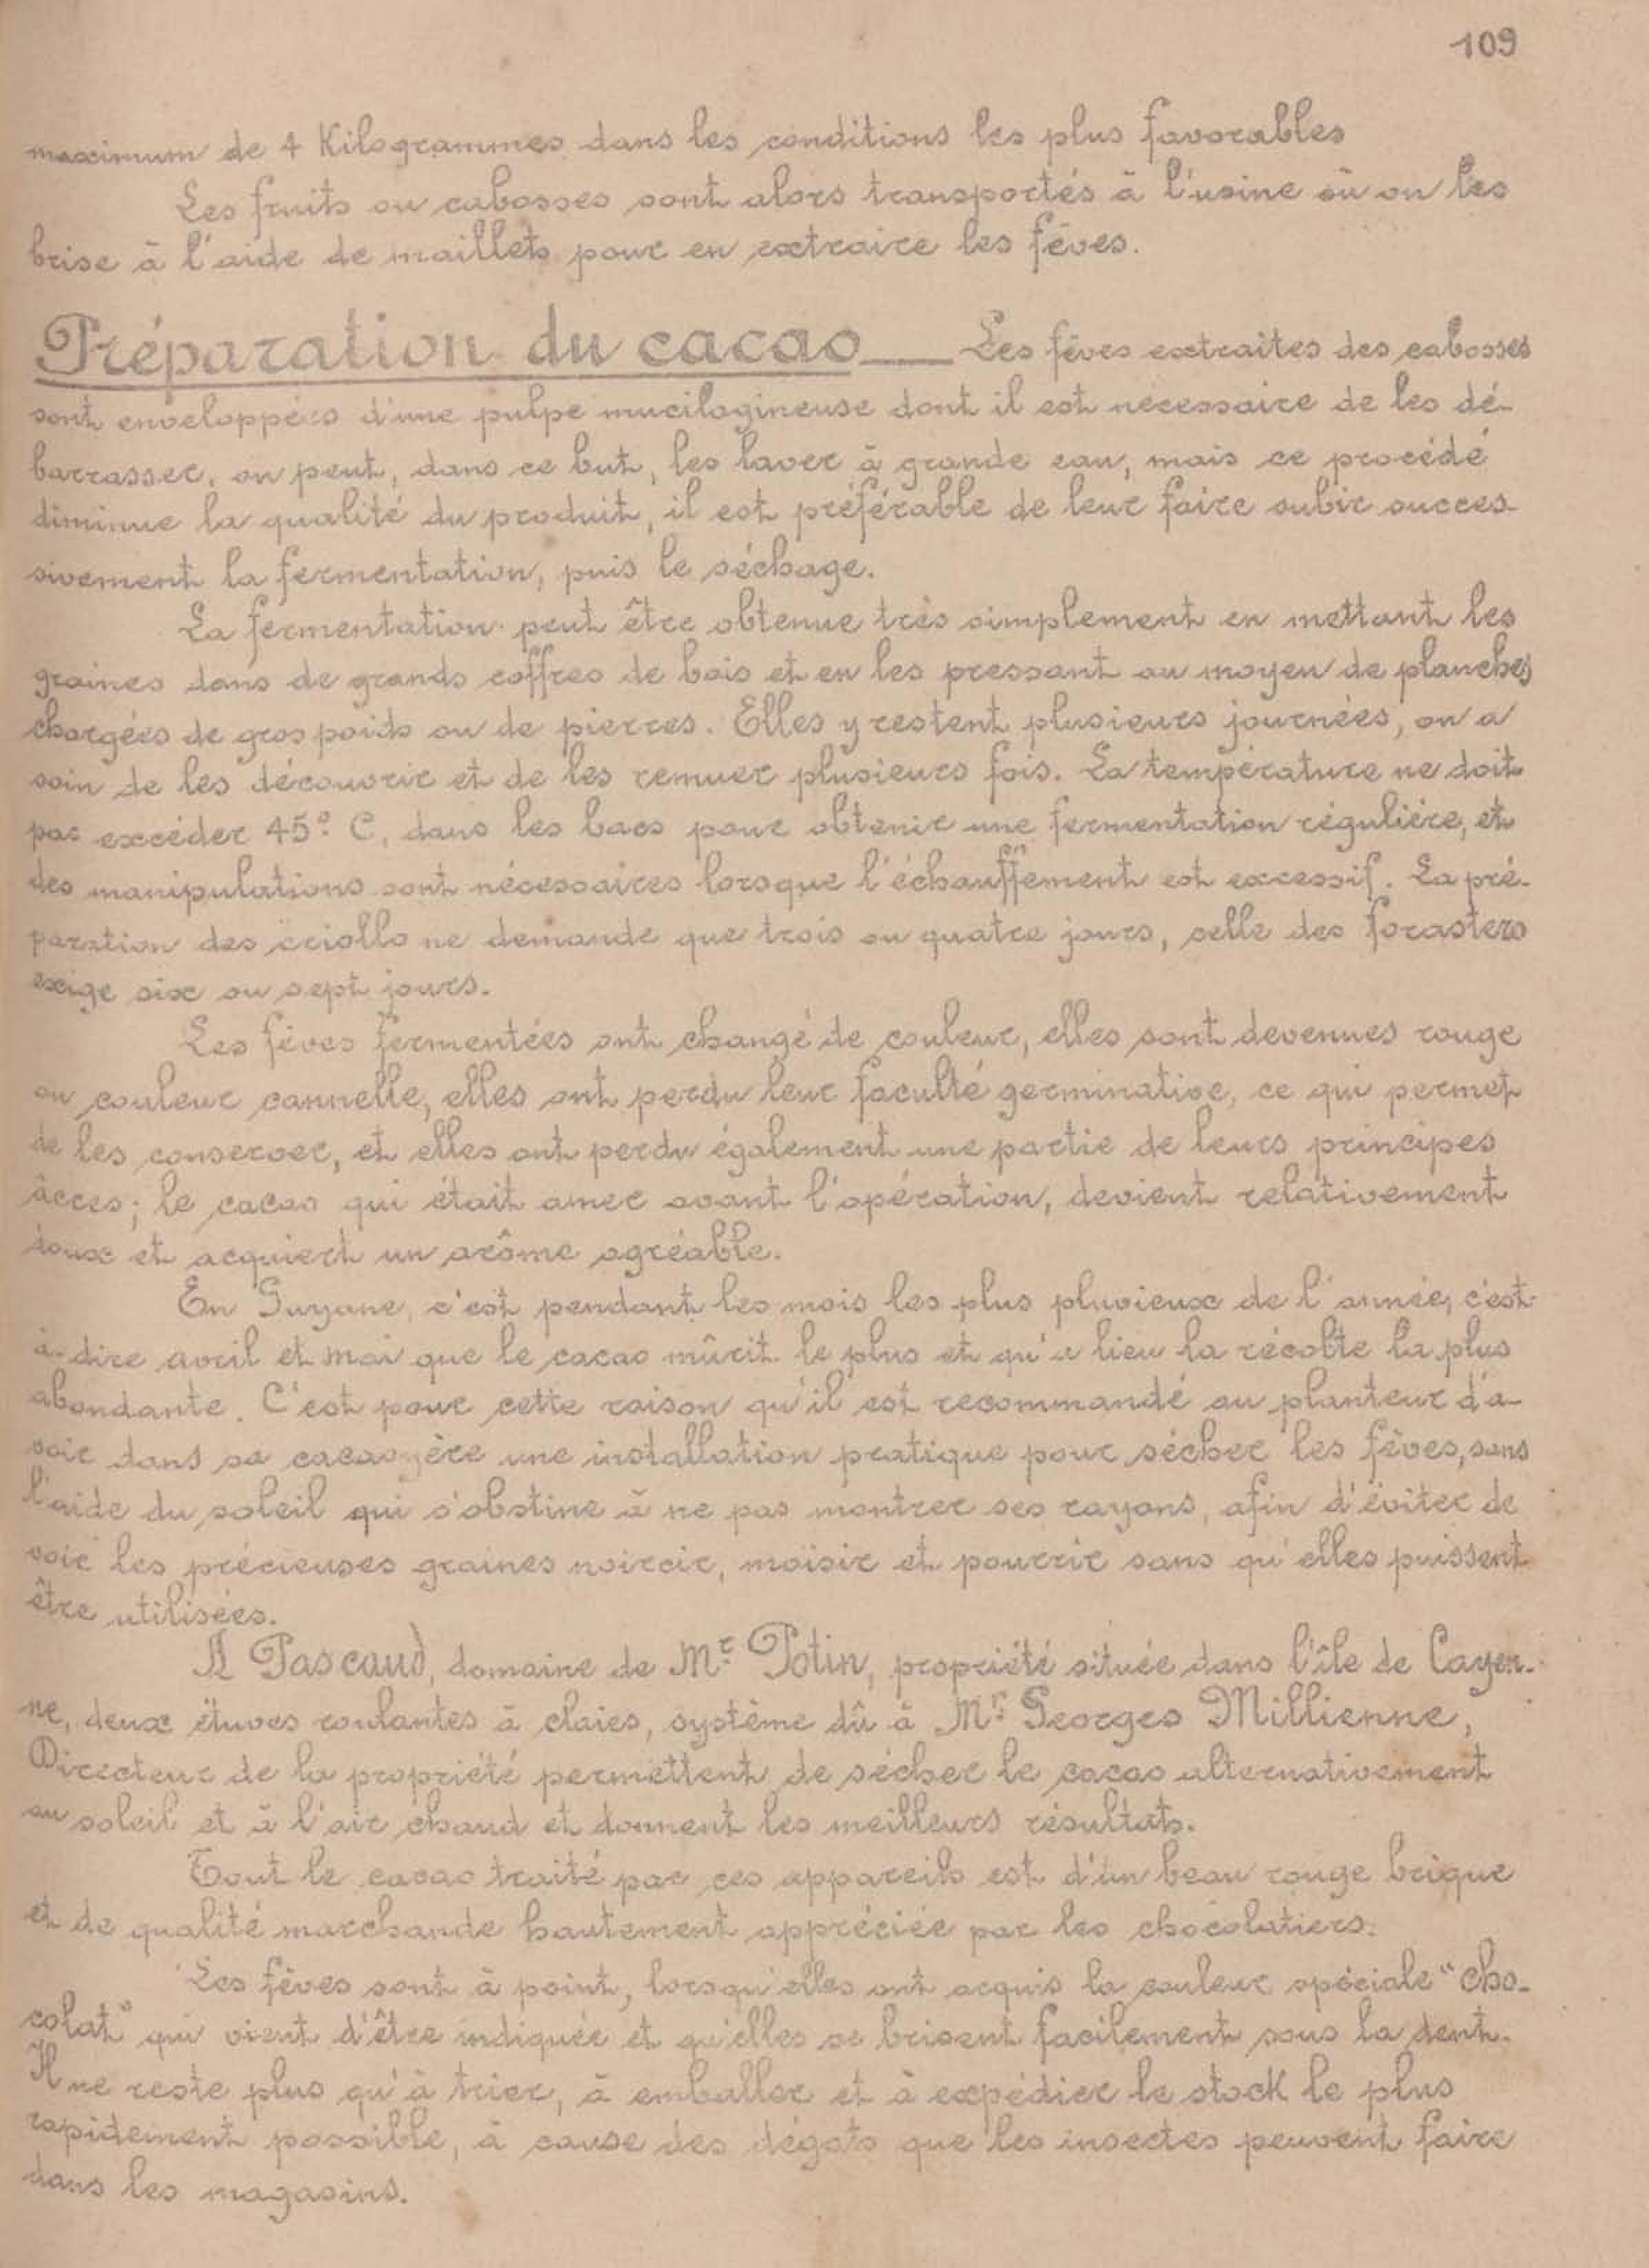 109
maximum de 4 Kilogrammes dans les conditions les plus favorables
Les fruits ou cabosses sont alors transportés à l'usine où on les
brise à l'aide de maillets pour en extraire les fèves.
Préparation du cacao — Les fèves extraites des cabosses
sont enveloppées d'une pulpe mucilagineuse dont il est nécessaire de les dé-
barrasser, on peut, dans ce but, les laver à grande eau, mais ce procédé
diminue la qualité du produit, il est préférable de leur faire subir succes-
sivement la fermentation, puis le séchage.
La fermentation peut être obtenue très simplement en mettant les
graines dans de grands coffres de bois et en les pressant au moyen de planches
chargées de gros poids ou de pierres. Elles y restent plusieurs journées, on a
soin de les découvrir et de les remuer plusieurs fois. La température ne doit
pas excéder 45° C, dans les bacs pour obtenir une fermentation régulière, et
des manipulations sont nécessaires lorsque l'échauffement est excessif. La pré-
paration des criollo ne demande que trois ou quatre jours, celle des forastero
exige six ou sept jours.
Les fèves fermentées ont changé de couleur, elles sont devenues rouge
ou couleur cannelle, elles ont perdu leur faculté germinative, ce qui permet
de les conserver, et elles ont perdu également une partie de leurs principes
âcres; le cacao qui était amer avant l'opération, devient relativement
doux et acquiert un arôme agréable.
En Guyane, c'est pendant les mois les plus pluvieux de l'année, c'est-
à-dire avril et mai que le cacao mûrit le plus et qu'a lieu la récolte la plus
abondante. C'est pour cette raison qu'il est recommandé au planteur d'a-
voir dans sa cacaoyère une installation pratique pour sécher les fèves, sans
l'aide du soleil qui s'obstine à ne pas montrer ses rayons, afin d'éviter de
voir les précieuses graines noircir, moisir et pourrir sans qu'elles puissent
être utilisées.
A Pascaud, domaine de Mr. Potin, propriété située dans l'île de Cayen-
ne, deux étuves roulantes à claies, système dû à Mr. Georges Millienne,
Directeur de la propriété permettent de sécher le cacao alternativement
au soleil et à l'air chaud et donnent les meilleurs résultats.
Tout le cacao traité par ces appareils est d'un beau rouge brique
et de qualité marchande hautement appréciée par les chocolatiers.
Les fèves sont à point, lorsqu'elles ont acquis la couleur spéciale "cho-
colat" qui vient d'être indiquée et qu'elles se brisent facilement sous la dent.
Il ne reste plus qu'à trier, à emballer et à expédier le stock le plus
rapidement possible, à cause des dégats que les insectes peuvent faire
dans les magasins.